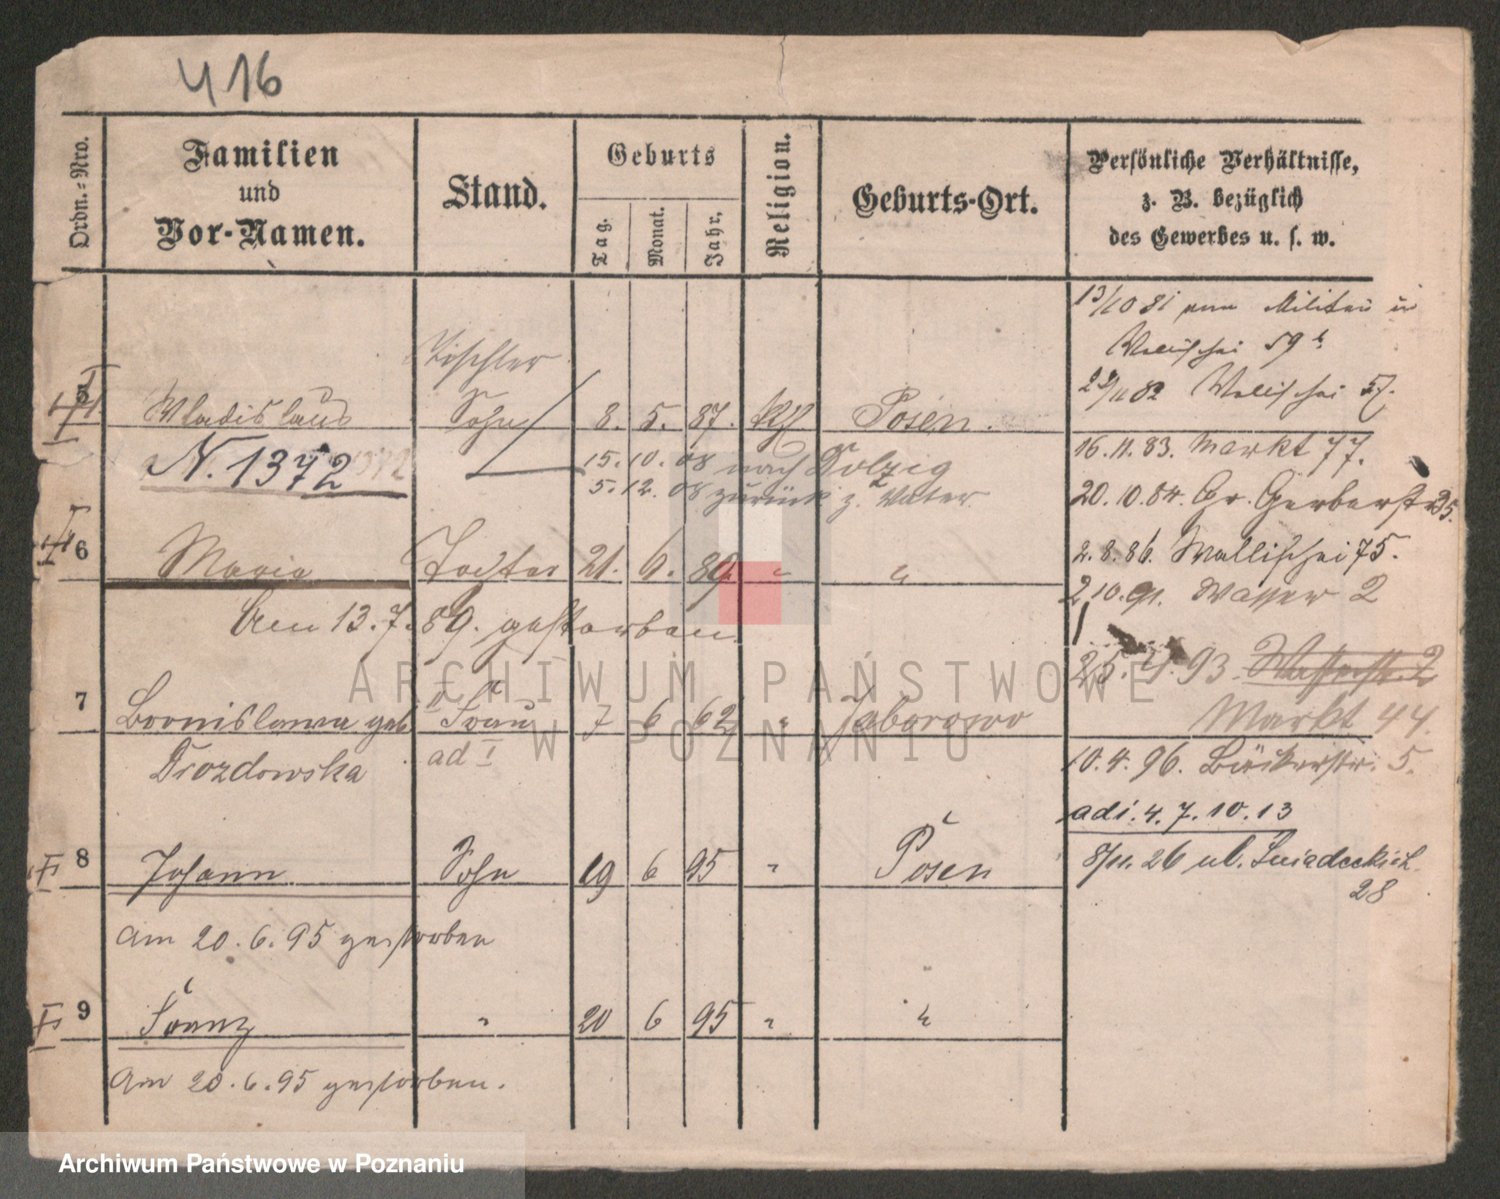 416
Ordn.=Nro.
Familien
und
Vor-Namen.
Stand.
Geburts
Tag.
Monat.
Jahr.
Religion.
Geburts-Ort.
Persönliche Verhältnisse,
z. B. bezüglich
des Gewerbes u. s. w.
13/10 81 zum Militair in
Wallischei 59
Tischler
5 Wladislaus Sohn 8. 5. 87. kth Posen.
Wallischei
N. 1372
15. 10. 08 nach Dolzig
5. 12. 08 zurück z. Vater
16. 11. 83. Markt 77.
20. 10. 84. Gr. Gerberstr 35.
6 Maria Tochter 21. 6. 89. " "
2. 8. 86. Wallischei 75.
2 10. 91. Wasser 2
Am 13. 7. 89. gestorben
25. 4. 93. Wasserstr. 2
Markt 44.
7 Bronislawa geb Frau 7 6 62 " Jaborowo
Drozdowska
ad I
10. 4. 96. Bäckerstr. 5.
adi. 4. 7. 10. 13
8/11. 26 ul. Śniadeckich
28
8 Johann Sohn 19 6 95 " Posen
am 20. 6. 95 gestorben
9 Franz " 20 6 95 " "
Am 20. 6. 95 gestorben.
ARCHIWUM PAŃSTWOWE
W POZNANIU
Archiwum Państwowe w Poznaniu